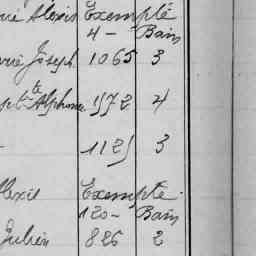 Alexis Exempté
4 - Bain
Joseph 1065 3
pte Alphonse 1572 4
1125 3
Alexis Exempté
120 - Bain
Julien 826 2